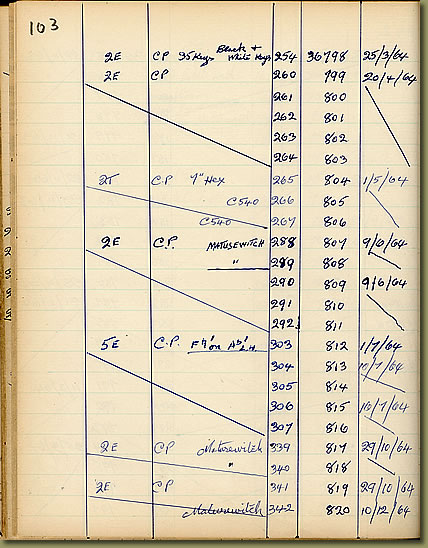 103
2E CP 35 Keys Black + White Keys 254 36798 25/3/64
2E CP 260 799 20/4/64
261 800
262 801
263 802
264 803
2T C.P 7" Hex 265 804 1/5/64
C540 266 805
C540 267 806
2E C.P. MATUSEWITCH 288 807 9/6/64
" 289 808
290 809 9/6/64
291 810
292 811
5E C.P. on L.H. 303 812 1/7/64
304 813
305 814
306 815 16/7/64
307 816
2E CP Matusewitch 339 817 29/10/64
" 340 818
2E CP 341 819 29/10/64
Matusewitch 342 820 10/12/64